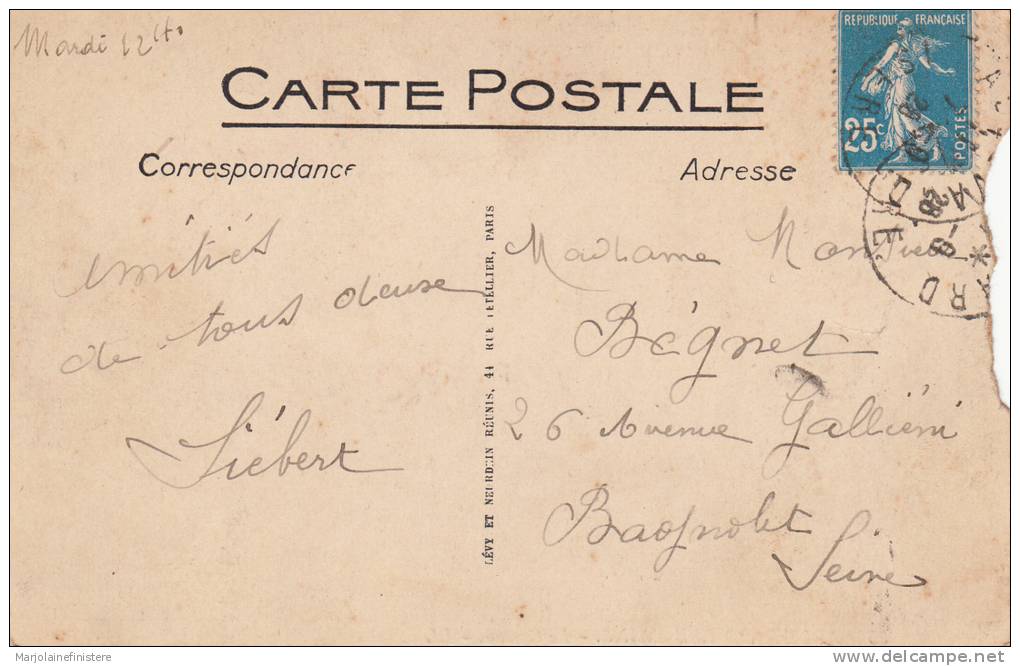 Mardi 12 h
CARTE POSTALE
Correspondance
Adresse
REPUBLIQUE FRANÇAISE
25c
POSTES
amitiés
de tous deux
Siébert
LÉVY ET NEURDEIN RÉUNIS, 44 RUE LETELLIER, PARIS
Madame
Bégnet
26 Avenue Galliéni
Bagnolet
Seine
Marjolainefinistere
delcampe.net